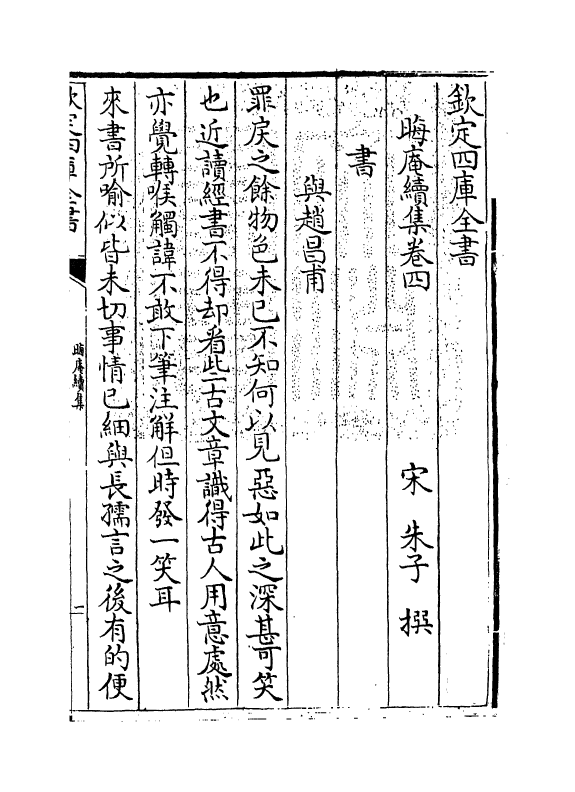 欽定四庫全書
晦庵續集卷四
宋 朱子 撰
書
與趙昌甫
罪戾之餘物色未已不知何以見惡如此之深甚可笑
也近讀經書不得却看此古文章識得古人用意處然
亦覺轉喉觸諱不敢下筆注解但時發一笑耳
來書所喻似皆未切事情已細與長孺言之後有的便
欽定四庫全書
晦庵續集
一